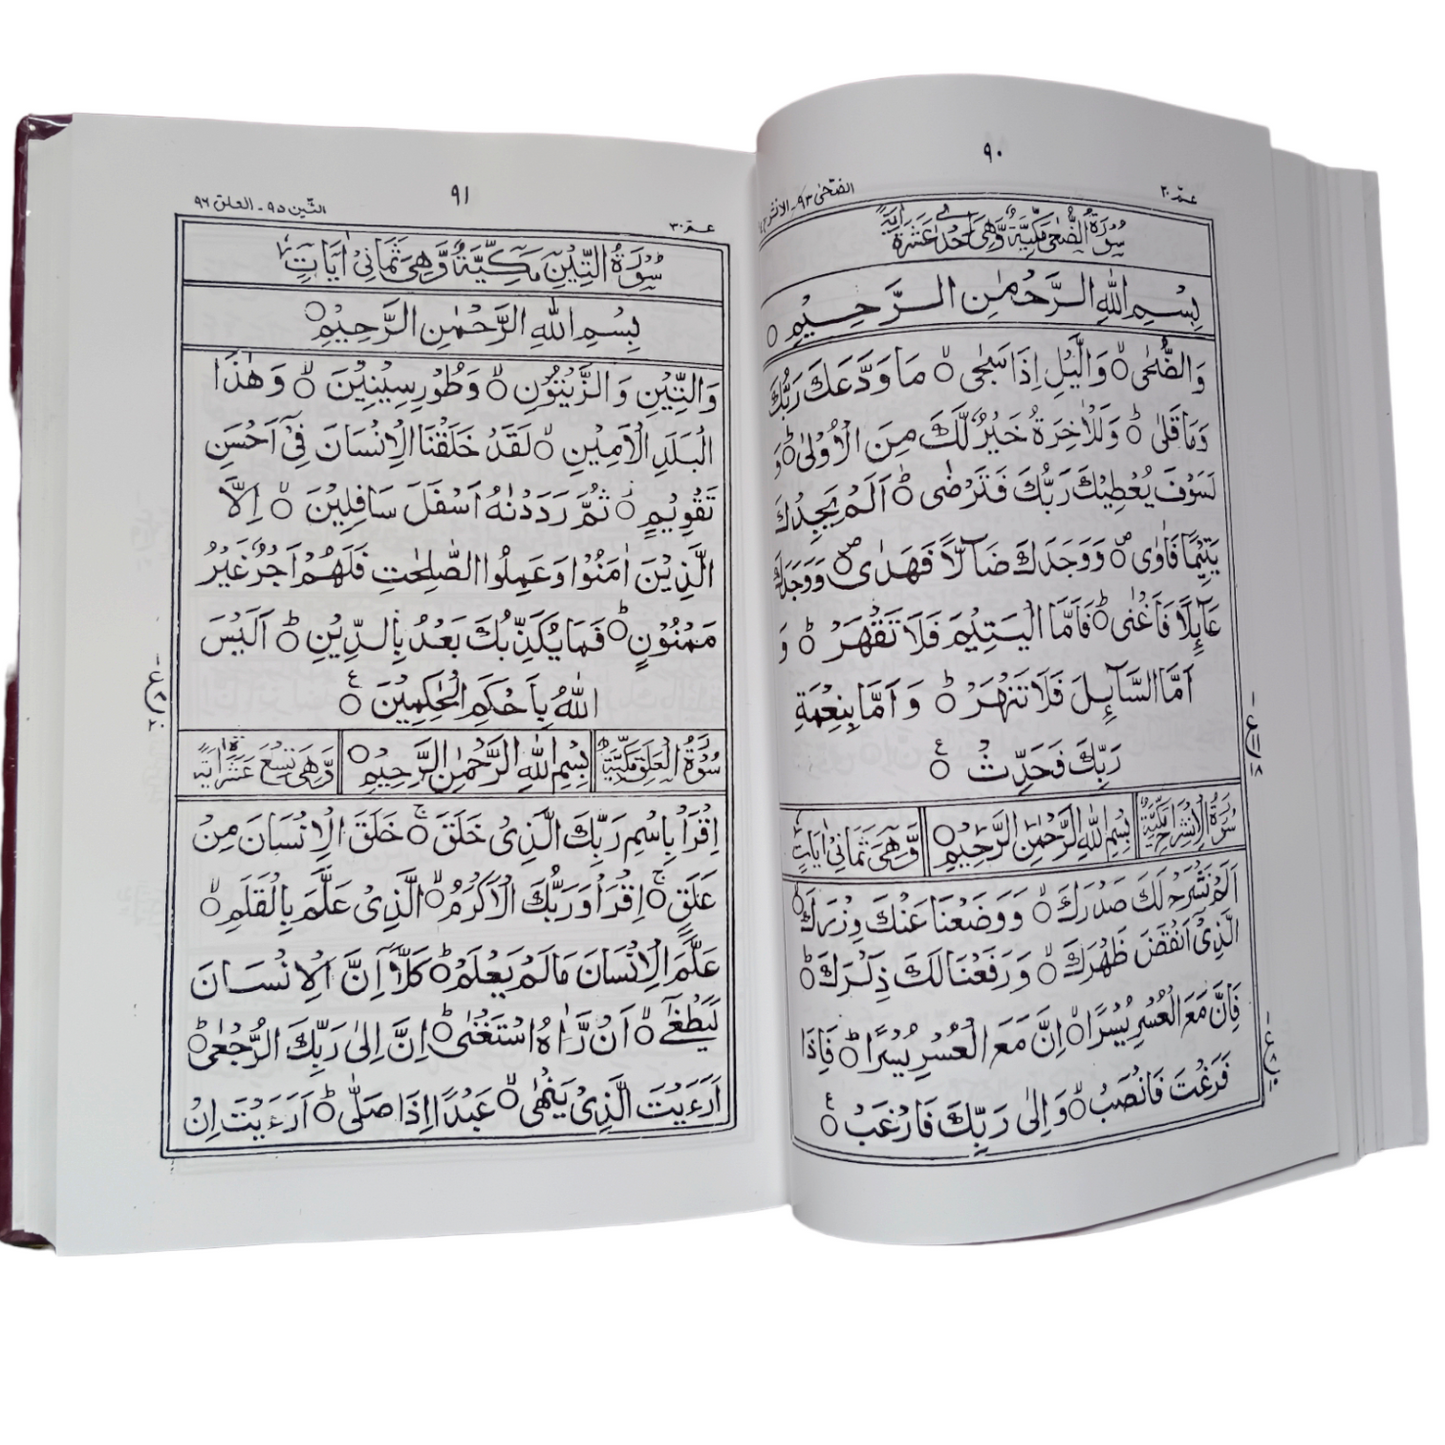 ٩٠
عمّ ٣٠
الضّحٰى ٩٣ - الانشر
سُوْرَةُ الضُّحٰى مَكِّيَّةٌ وَّهِىَ اِحْدٰى عَشَرَةَ اٰيَةً
بِسْمِ اللّٰهِ الرَّحْمٰنِ الرَّحِيْمِ ○
وَالضُّحٰى ○ وَالَّيْلِ اِذَا سَجٰى ○ مَا وَدَّعَكَ رَبُّكَ
وَمَا قَلٰى ○ وَلَلْاٰخِرَةُ خَيْرٌ لَّكَ مِنَ الْاُوْلٰى ○ وَ
لَسَوْفَ يُعْطِيْكَ رَبُّكَ فَتَرْضٰى ○ اَلَمْ يَجِدْكَ
يَتِيْمًا فَاٰوٰى ○ وَوَجَدَكَ ضَآلًّا فَهَدٰى ○ وَوَجَدَكَ
عَآئِلًا فَاَغْنٰى ○ فَاَمَّا الْيَتِيْمَ فَلَا تَقْهَرْ ○ وَ
اَمَّا السَّآئِلَ فَلَا تَنْهَرْ ○ وَاَمَّا بِنِعْمَةِ
رَبِّكَ فَحَدِّثْ ○
سُوْرَةُ الْاِنْشِرَاحِ مَكِّيَّةٌ بِسْمِ اللّٰهِ الرَّحْمٰنِ الرَّحِيْمِ ○ وَّهِىَ ثَمَانِىْ اٰيَاتٍ
اَلَمْ نَشْرَحْ لَكَ صَدْرَكَ ○ وَوَضَعْنَا عَنْكَ وِزْرَكَ ○
الَّذِىْٓ اَنْقَضَ ظَهْرَكَ ○ وَرَفَعْنَا لَكَ ذِكْرَكَ ○
فَاِنَّ مَعَ الْعُسْرِ يُسْرًا ○ اِنَّ مَعَ الْعُسْرِ يُسْرًا ○ فَاِذَا
فَرَغْتَ فَانْصَبْ ○ وَاِلٰى رَبِّكَ فَارْغَبْ ○
٩١
عمّ ٣٠
التّين ٩٥ - العلق ٩٦
سُوْرَةُ التِّيْنِ مَكِّيَّةٌ وَّهِىَ ثَمَانِىْ اٰيَاتٍ
بِسْمِ اللّٰهِ الرَّحْمٰنِ الرَّحِيْمِ ○
وَالتِّيْنِ وَالزَّيْتُوْنِ ○ وَطُوْرِ سِيْنِيْنَ ○ وَهٰذَا
الْبَلَدِ الْاَمِيْنِ ○ لَقَدْ خَلَقْنَا الْاِنْسَانَ فِىْٓ اَحْسَنِ
تَقْوِيْمٍ ○ ثُمَّ رَدَدْنٰهُ اَسْفَلَ سَافِلِيْنَ ○ اِلَّا
الَّذِيْنَ اٰمَنُوْا وَعَمِلُوا الصّٰلِحٰتِ فَلَهُمْ اَجْرٌ غَيْرُ
مَمْنُوْنٍ ○ فَمَا يُكَذِّبُكَ بَعْدُ بِالدِّيْنِ ○ اَلَيْسَ
اللّٰهُ بِاَحْكَمِ الْحٰكِمِيْنَ ○
سُوْرَةُ الْعَلَقِ مَكِّيَّةٌ بِسْمِ اللّٰهِ الرَّحْمٰنِ الرَّحِيْمِ ○ وَّهِىَ تِسْعَ عَشَرَ اٰيَةً
اِقْرَاْ بِاسْمِ رَبِّكَ الَّذِىْ خَلَقَ ○ خَلَقَ الْاِنْسَانَ مِنْ
عَلَقٍ ○ اِقْرَاْ وَرَبُّكَ الْاَكْرَمُ ○ الَّذِىْ عَلَّمَ بِالْقَلَمِ ○
عَلَّمَ الْاِنْسَانَ مَا لَمْ يَعْلَمْ ○ كَلَّآ اِنَّ الْاِنْسَانَ
لَيَطْغٰٓى ○ اَنْ رَّاٰهُ اسْتَغْنٰى ○ اِنَّ اِلٰى رَبِّكَ الرُّجْعٰى ○
اَرَءَيْتَ الَّذِىْ يَنْهٰى ○ عَبْدًا اِذَا صَلّٰى ○ اَرَءَيْتَ اِنْ